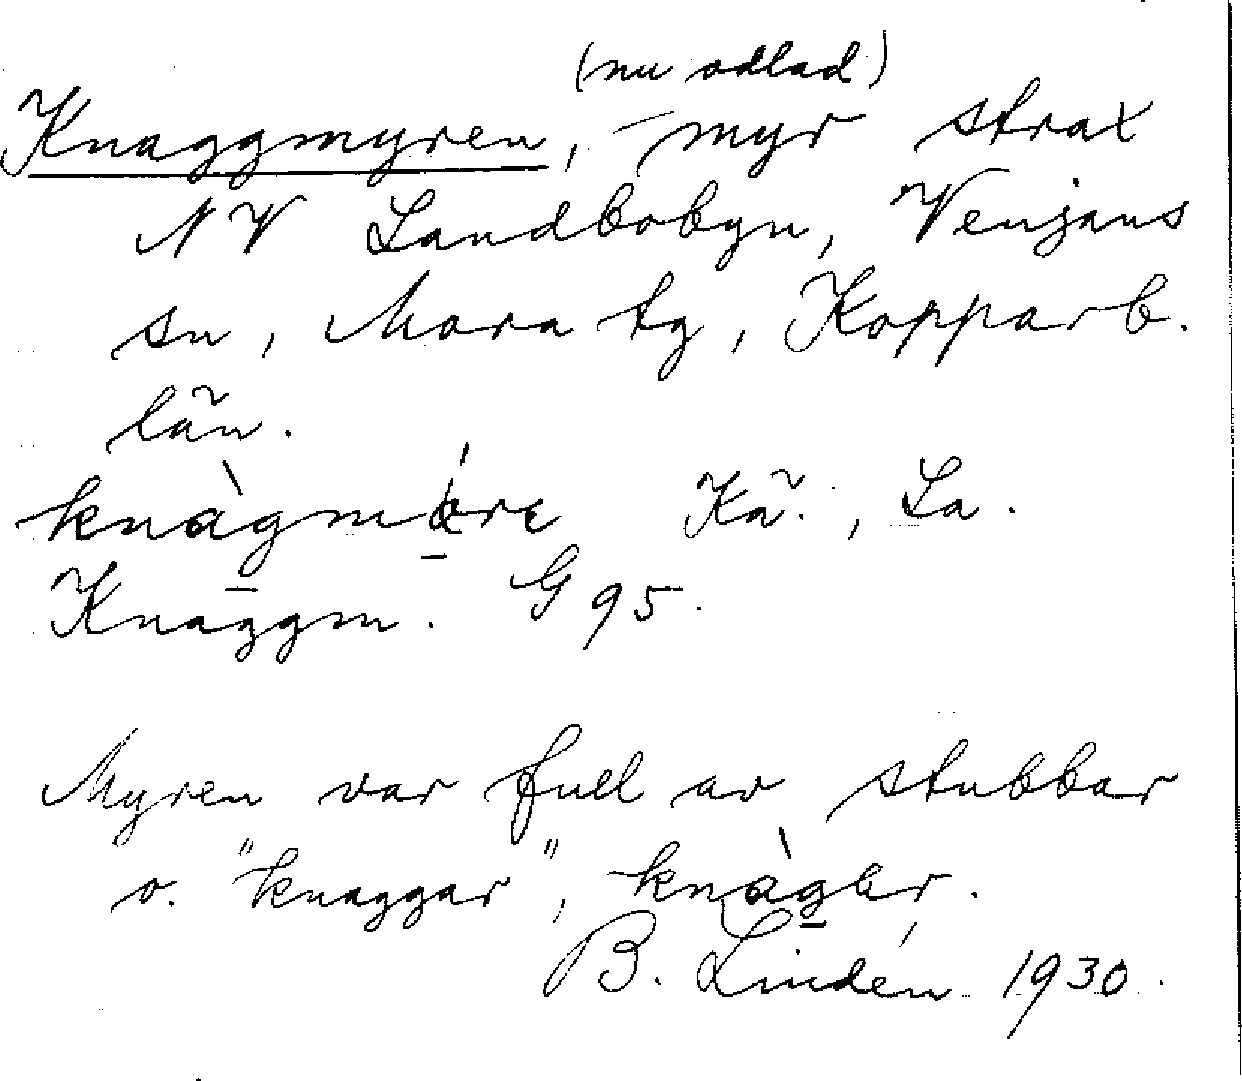 (nu odlad)
Knaggmyren, – myr strax
NV Landbobyn, Venjans
sn, Mora tg, Kopparb.
län.
Kä., La.
Knaggm. G 95.
Myren var full av stubbar
o. "knaggar", knàgar.
B. Lindén 1930.